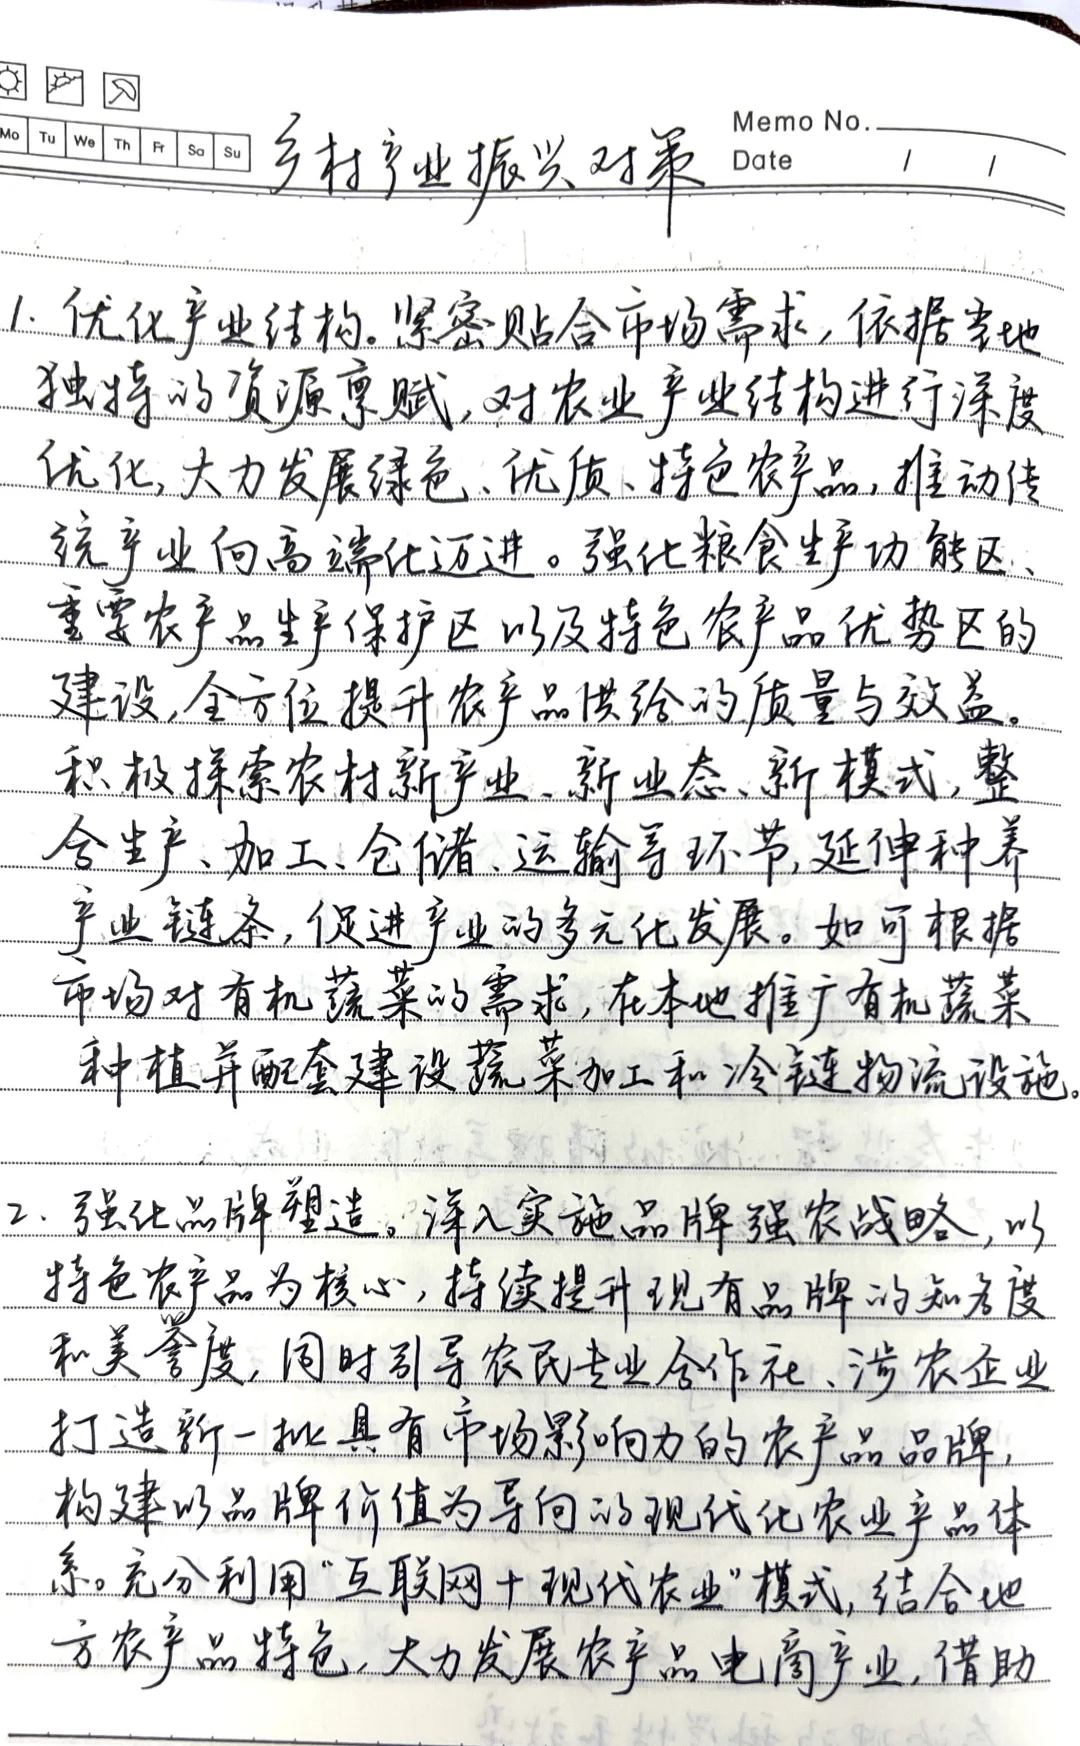 Mo Tu We Th Fr Sa Su
Memo No.
Date / /
乡村产业振兴对策
1. 优化产业结构。紧密贴合市场需求，依据当地
独特的资源禀赋，对农业产业结构进行深度
优化，大力发展绿色、优质、特色农产品，推动传
统产业向高端化迈进。强化粮食生产功能区、
重要农产品生产保护区以及特色农产品优势区的
建设，全方位提升农产品供给的质量与效益。
积极探索农村新产业、新业态、新模式，整
合生产、加工、仓储、运输等环节，延伸种养
产业链条，促进产业的多元化发展。如可根据
市场对有机蔬菜的需求，在本地推广有机蔬菜
种植并配套建设蔬菜加工和冷链物流设施。
2. 强化品牌塑造。深入实施品牌强农战略，以
特色农产品为核心，持续提升现有品牌的知名度
和美誉度，同时引导农民专业合作社、涉农企业
打造新一批具有市场影响力的农产品品牌，
构建以品牌价值为导向的现代化农业产品体
系。充分利用“互联网＋现代农业”模式，结合地
方农产品特色，大力发展农产品电商产业，借助